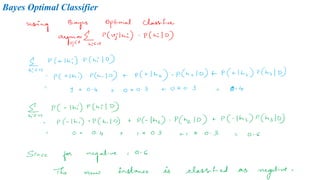 Bayes Optimal Classifier
using Bayes Optimal Classifier
argmax Σ P(vj|hi) · P(hi|D)
vj∈V hi∈H
Σ P(+|hi) P(hi|D)
hi∈H
= P(+|h1) · P(h1|D) + P(+|h2) · P(h2|D) + P(+|h3) P(h3|D)
= 1 × 0.4 + 0 × 0.3 + 0 × 0.3 = 0.4
Σ P(-|hi) P(hi|D)
hi∈H
= P(-|h1) · P(h1|D) + P(-|h2) · P(h2|D) + P(-|h3) P(h3|D)
= 0 × 0.4 + 1 × 0.3 + 1 × 0.3 = 0.6
Since for negative = 0.6
The new instance is classified as negative.